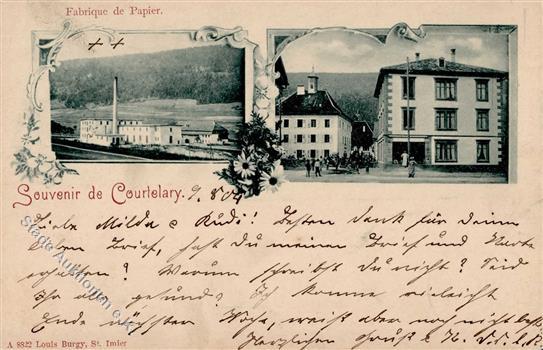 Fabrique de Papier.
Souvenir de Courtelary. 9. 8 04
Liebe Milda & Rudi! Besten dank für deinen
lieben Brief, hast du meinen Brief und Karte
erhalten? Warum schreibst du nicht? Seid
Ihr alle gesund? Ich komme vieleicht
Ende nächster Woche, weiss aber noch nicht best.
Herzlichen Gruss
A 8822 Louis Burgy, St. Imier